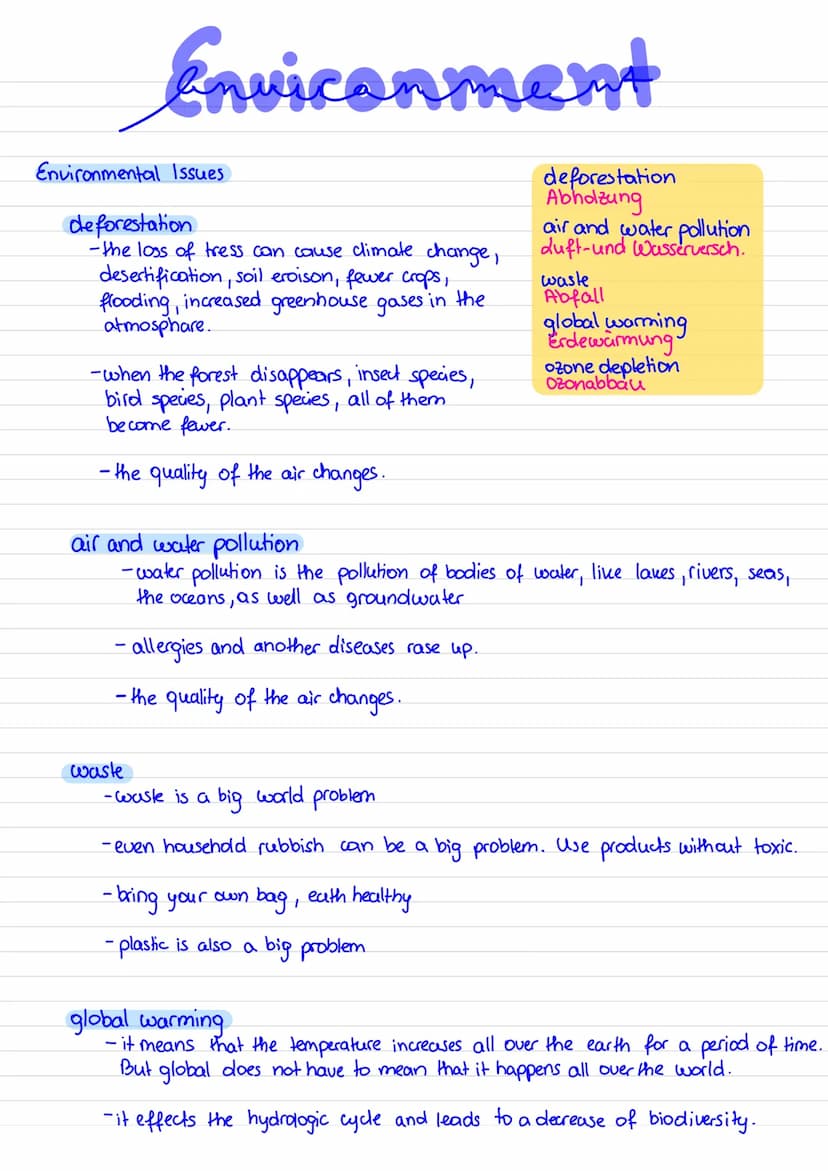 Environment
Environmental Issues
deforestation
-the loss of tress can cause climate change,
desertification, soil eroison, fewer crops,
flooding, increased greenhouse gases in the
atmosphare.
-when the forest disappears, insect species,
bird species, plant species, all of them
become fewer.
-the quality of the air changes.
deforestation
Abholzung
air and water pollution
duft-und Wasserversch.
waste
Abfall
global worming
Erdewärmung
ozone depletion
Ozonabbau
air and water pollution
-water pollution is the pollution of bodies of water, like lakes, rivers, seas,
the oceans, as well as groundwater
- allergies and another diseases rase up.
-the quality of the air changes.
waste
-waste is a big world problem
-even household rubbish can be a big problem. Use products without toxic.
-bring your own bag, eath healthy
-plastic is also a big problem
global warming
-it means that the temperature increases all over the earth for a period of time.
But global does not have to mean that it happens all over the world.
-it effects the hydrologic cycle and leads to a decrease of biodiversity.